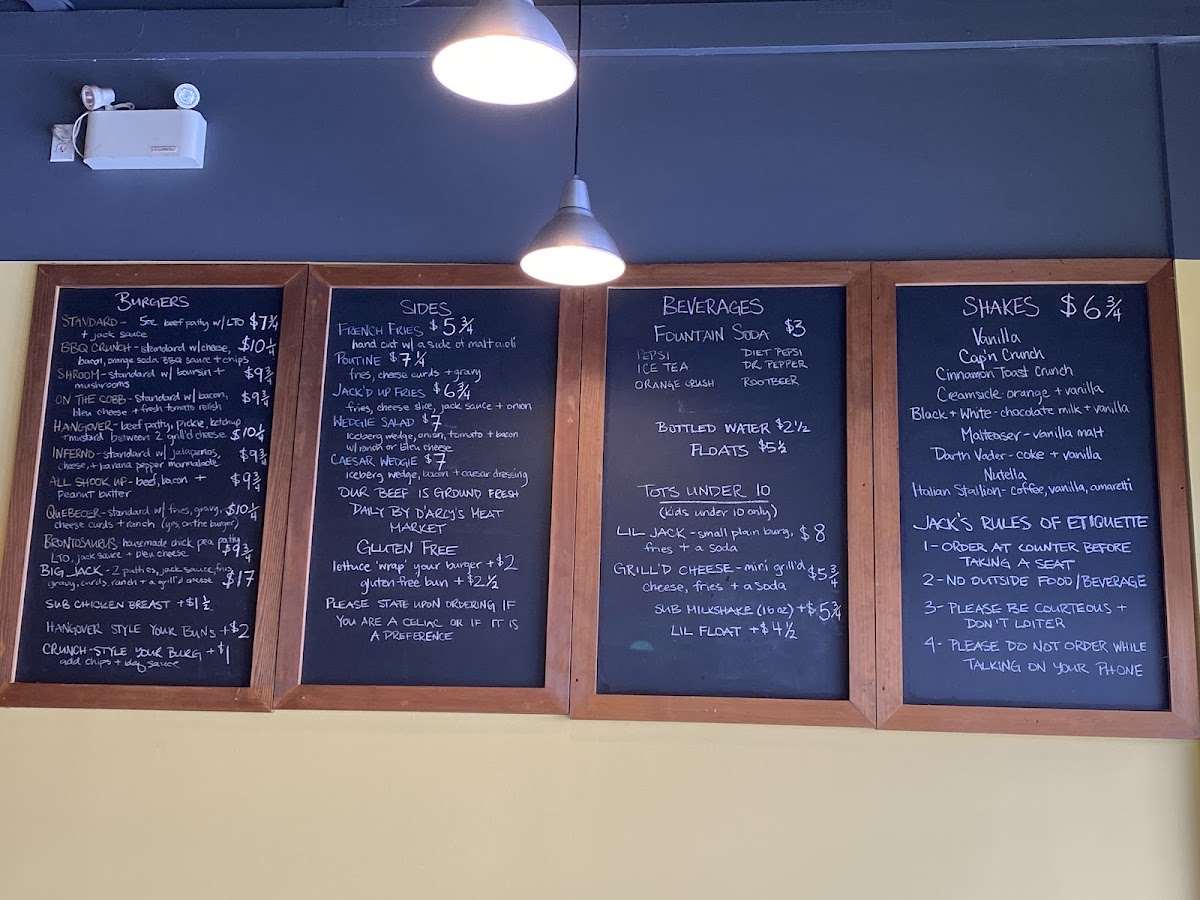 BURGERS
STANDARD - 5oz beef patty w/ LTO $7 3/4
+ jack sauce
BBQ CRUNCH - standard w/ cheese, $10 1/4
bacon, orange soda BBQ sauce + chips
SHROOM - standard w/ boursin + $9 3/4
mushrooms
ON THE COBB - standard w/ bacon, $9 3/4
bleu cheese + fresh tomato relish
HANGOVER - beef patty, pickle, ketchup
+ mustard between 2 grill'd cheese $10 1/4
INFERNO - standard w/ jalapenos, $9 3/4
cheese, + banana pepper marmalade
ALL SHOOK UP - beef, bacon + $9 3/4
peanut butter
QUEBECER - standard w/ fries, gravy, $10 1/4
cheese curds + ranch (yes, on the burger)
BRONTOSAURUS - housemade chick pea patty,
LTO, jack sauce + bleu cheese $9 3/4
BIG JACK - 2 patties, jack sauce, fries,
gravy, curds, ranch + a grill'd cheese $17
SUB CHICKEN BREAST + $1 1/2
HANGOVER STYLE YOUR BUNS + $2
CRUNCH-STYLE YOUR BURG + $1
add chips + bbq sauce
SIDES
FRENCH FRIES $5 3/4
hand cut w/ a side of malt aioli
POUTINE $7 1/4
fries, cheese curds + gravy
JACK'D UP FRIES $6 3/4
fries, cheese slice, jack sauce + onion
WEDGIE SALAD $7
iceberg wedge, onion, tomato + bacon
w/ ranch or bleu cheese
CAESAR WEDGIE $7
iceberg wedge, bacon + caesar dressing
OUR BEEF IS GROUND FRESH
DAILY BY D'ARCY'S MEAT
MARKET
GLUTEN FREE
lettuce 'wrap' your burger + $2
gluten free bun + $2 1/2
PLEASE STATE UPON ORDERING IF
YOU ARE A CELIAC OR IF IT IS
A PREFERENCE
BEVERAGES
FOUNTAIN SODA $3
PEPSI DIET PEPSI
ICE TEA DR. PEPPER
ORANGE CRUSH ROOTBEER
BOTTLED WATER $2 1/2
FLOATS $5 1/2
TOTS UNDER 10
(kids under 10 only)
LIL JACK - small plain burg, $8
fries + a soda
GRILL'D CHEESE - mini grill'd $5 3/4
cheese, fries + a soda
SUB MILKSHAKE (16 oz) + $5 3/4
LIL FLOAT + $4 1/2
SHAKES $6 3/4
Vanilla
Cap'n Crunch
Cinnamon Toast Crunch
Creamsicle - orange + vanilla
Black + White - chocolate milk + vanilla
Malteaser - vanilla malt
Darth Vader - coke + vanilla
Nutella
Italian Stallion - coffee, vanilla, amaretti
JACK'S RULES OF ETIQUETTE
1 - ORDER AT COUNTER BEFORE
TAKING A SEAT
2 - NO OUTSIDE FOOD/BEVERAGE
3 - PLEASE BE COURTEOUS +
DON'T LOITER
4 - PLEASE DO NOT ORDER WHILE
TALKING ON YOUR PHONE